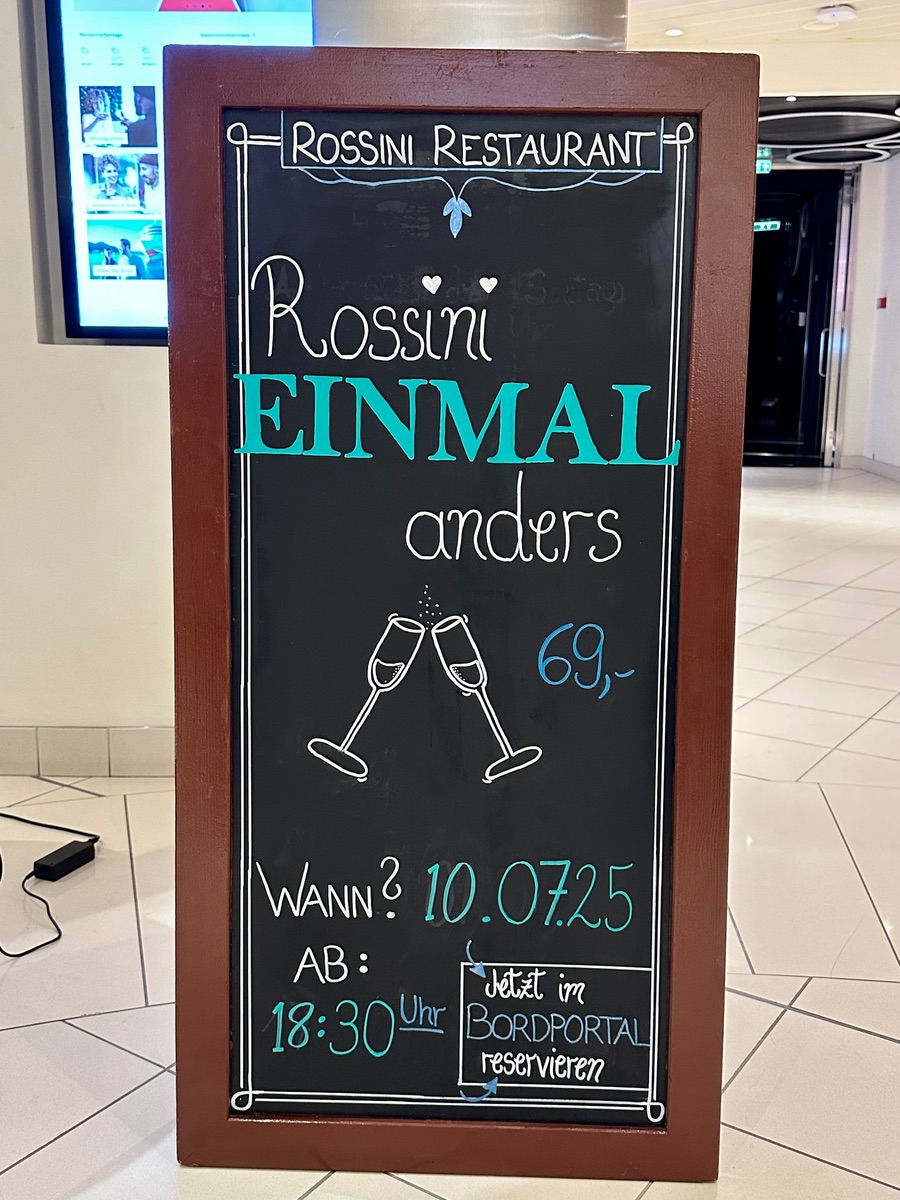 ROSSINI RESTAURANT
Rossini
EINMAL
anders
69,-
WANN? 10.07.25
AB:
18:30 Uhr
Jetzt im
BORDPORTAL
reservieren